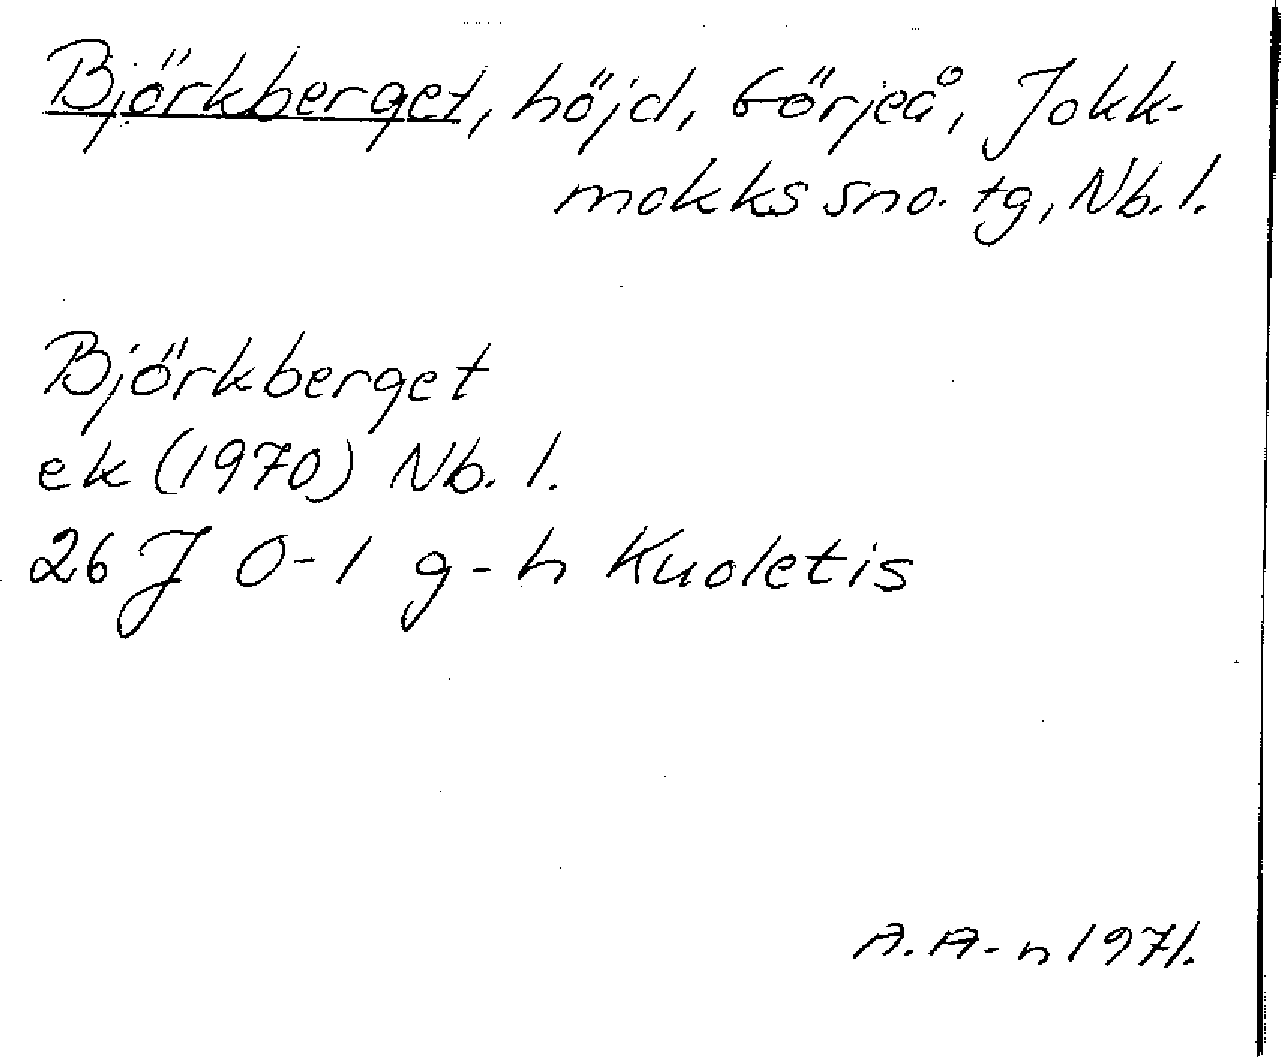 Björkberget, höjd, Görjeå, Jokk-
mokks sno. tg, Nb. l.
Björkberget
ek (1970) Nb. l.
26 J 0-1 g-h Kuoletis
A. A-n 1971.